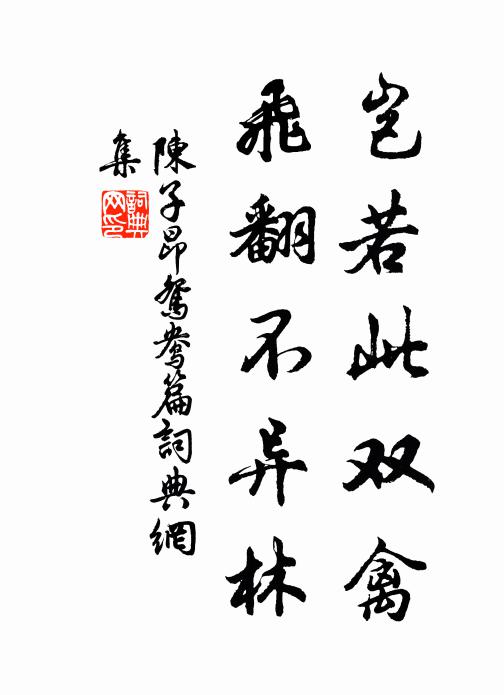 岂若此双禽
飛翻不异林
陳子昂鴛鴦篇詞典網
集
詞典网印